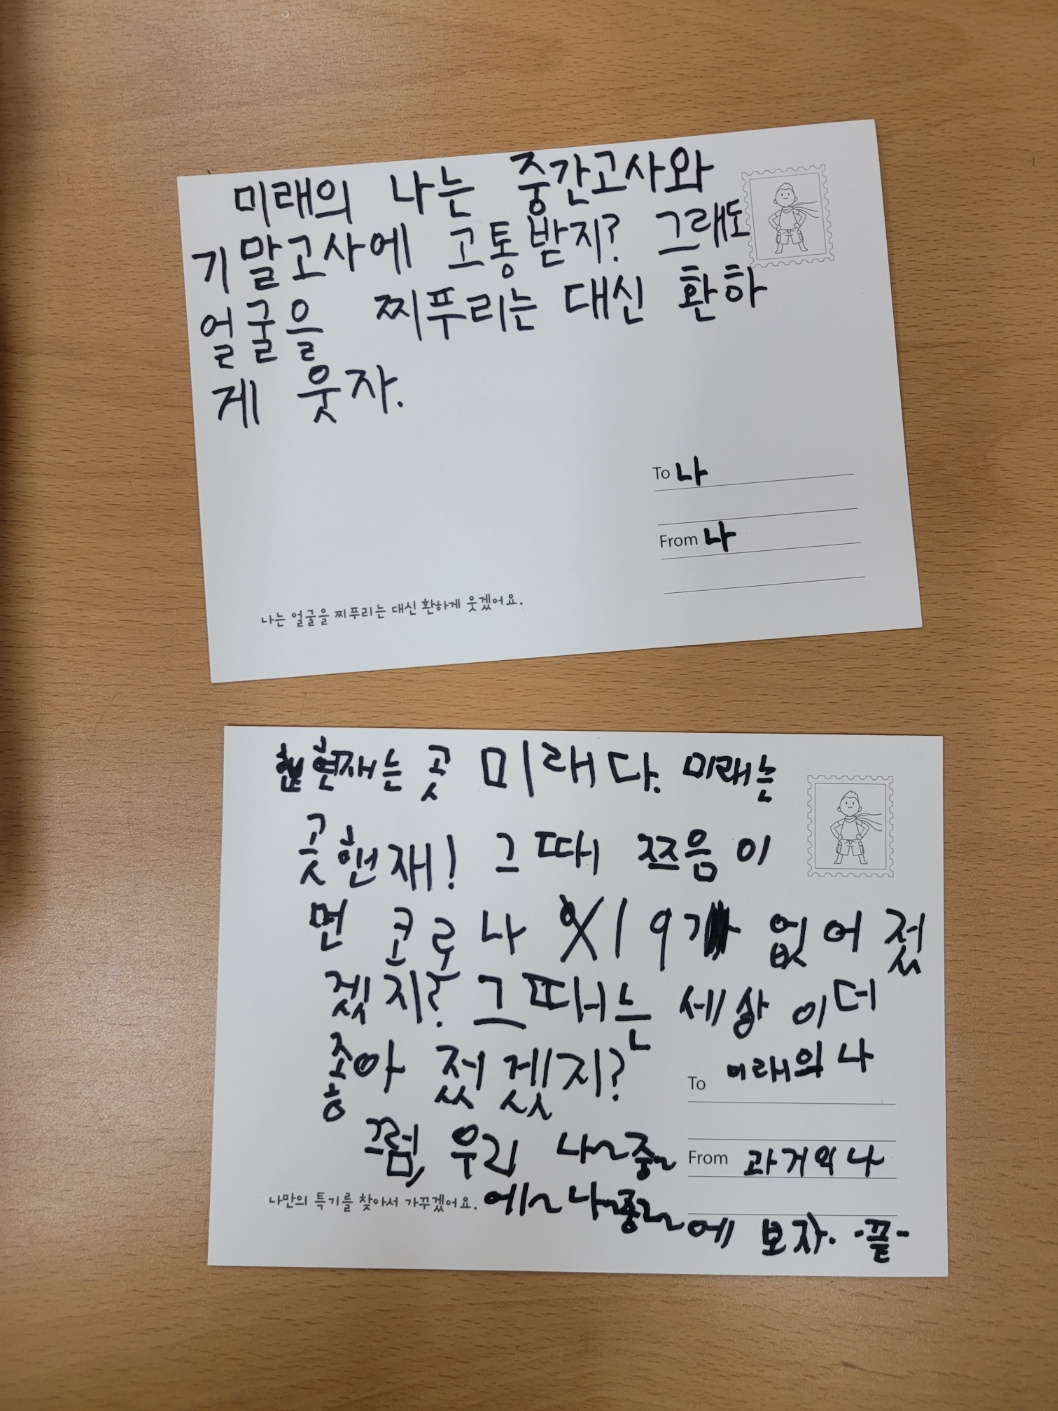 미래의 나는 중간고사와
기말고사에 고통받지? 그래도
얼굴을 찌푸리는 대신 환하
게 웃자.
To 나
From 나
나는 얼굴을 찌푸리는 대신 환하게 웃겠어요.
현재는 곳 미래다. 미래는
곳현재! 그때 쯔음이
면 코로나 19가 없어졌
겠지? 그때는 세상이더
좋아 졌겠지?
To 미래의 나
그럼, 우리 나~중~
From 과거의 나
나만의 특기를 찾아서 가꾸겠어요.
에~나~중~에 보자. -끝-